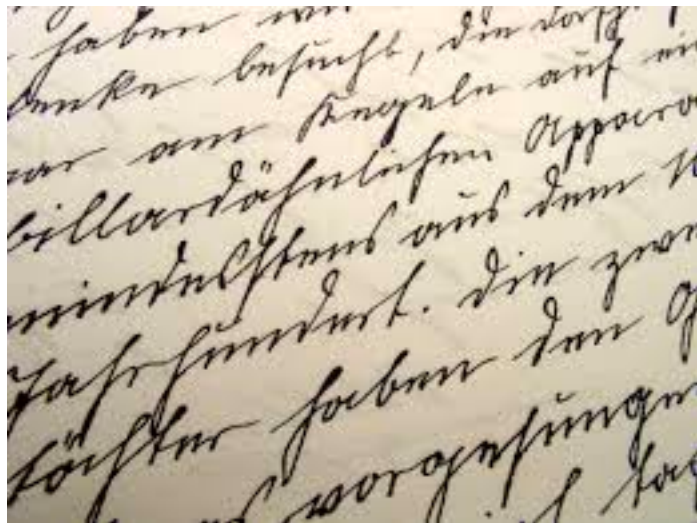 haben wi
Schenke besucht, die dorfj
war am Kegeln auf ei
billardähnlichen Appara
mindestens aus dem 1
Jahrhundert. Die zwe
Töchter haben den G
vorgesunge
ich ta